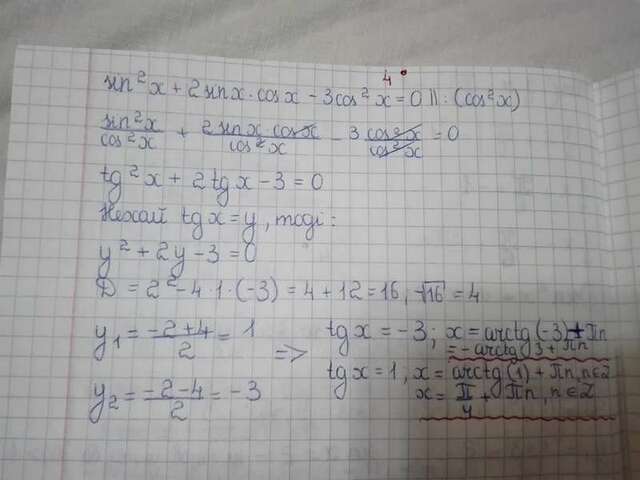 4°
sin²x + 2 sinx · cosx − 3cos²x = 0 ||: (cos²x)
sin²x/cos²x + 2 sinx cosx/cos²x − 3 cos²x/cos²x = 0
tg²x + 2 tgx − 3 = 0
Нехай tgx = y, тоді:
y² + 2y − 3 = 0
D = 2² − 4 · 1 · (−3) = 4 + 12 = 16, √16 = 4
y₁ = (−2+4)/2 = 1
y₂ = (−2−4)/2 = −3
=>
tgx = −3; x = arctg(−3) + πn
= −arctg 3 + πn
tgx = 1, x = arctg(1) + πn, n∈Z
x = π/4 + πn, n∈Z